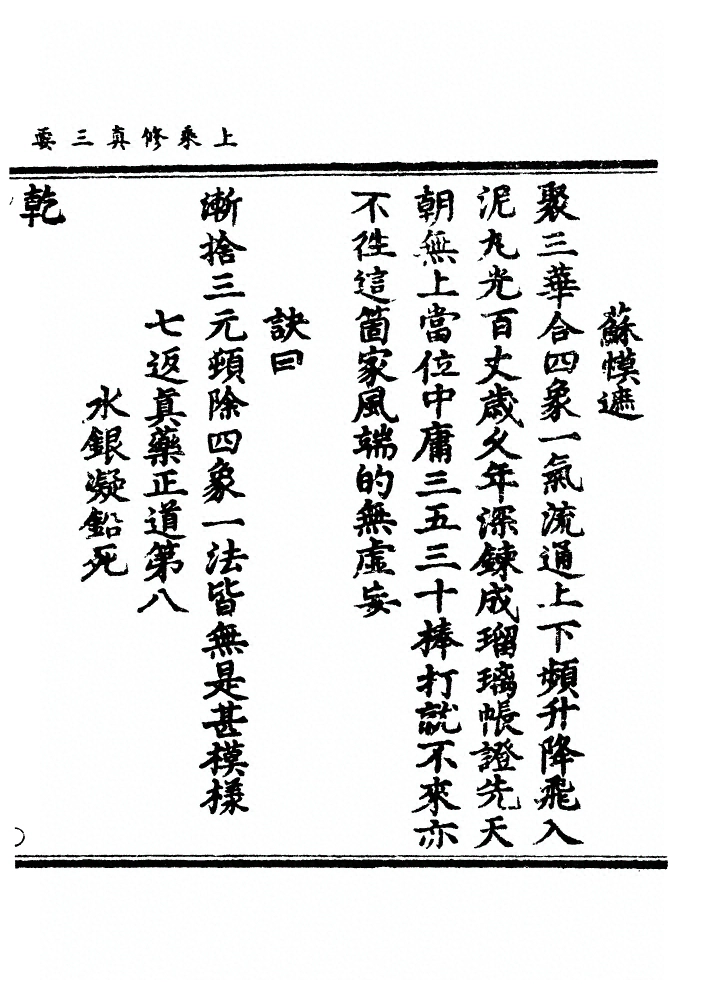 上乘修真三要
蘇幙遮
聚三華合四象一氣流通上下頻升降飛入
泥丸光百丈歲久年深鍊成瑠璃帳證先天
朝無上當位中庸三五三十棒打就不來亦
不徃這箇家風端的無虛妄
訣曰
漸捨三元頓除四象一法皆無是甚模㨾
七返真藥正道第八
水銀凝鉛死
乾